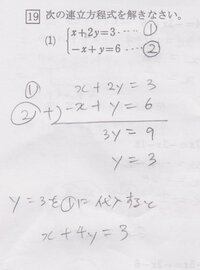 19 次の連立方程式を解きなさい。
(1) { x+2y=3 ‥‥ ①
-x+y=6 ‥‥ ②
① x+2y=3
② +) -x+y=6
3y=9
y=3
y=3を①に代入すると
x+4y=3